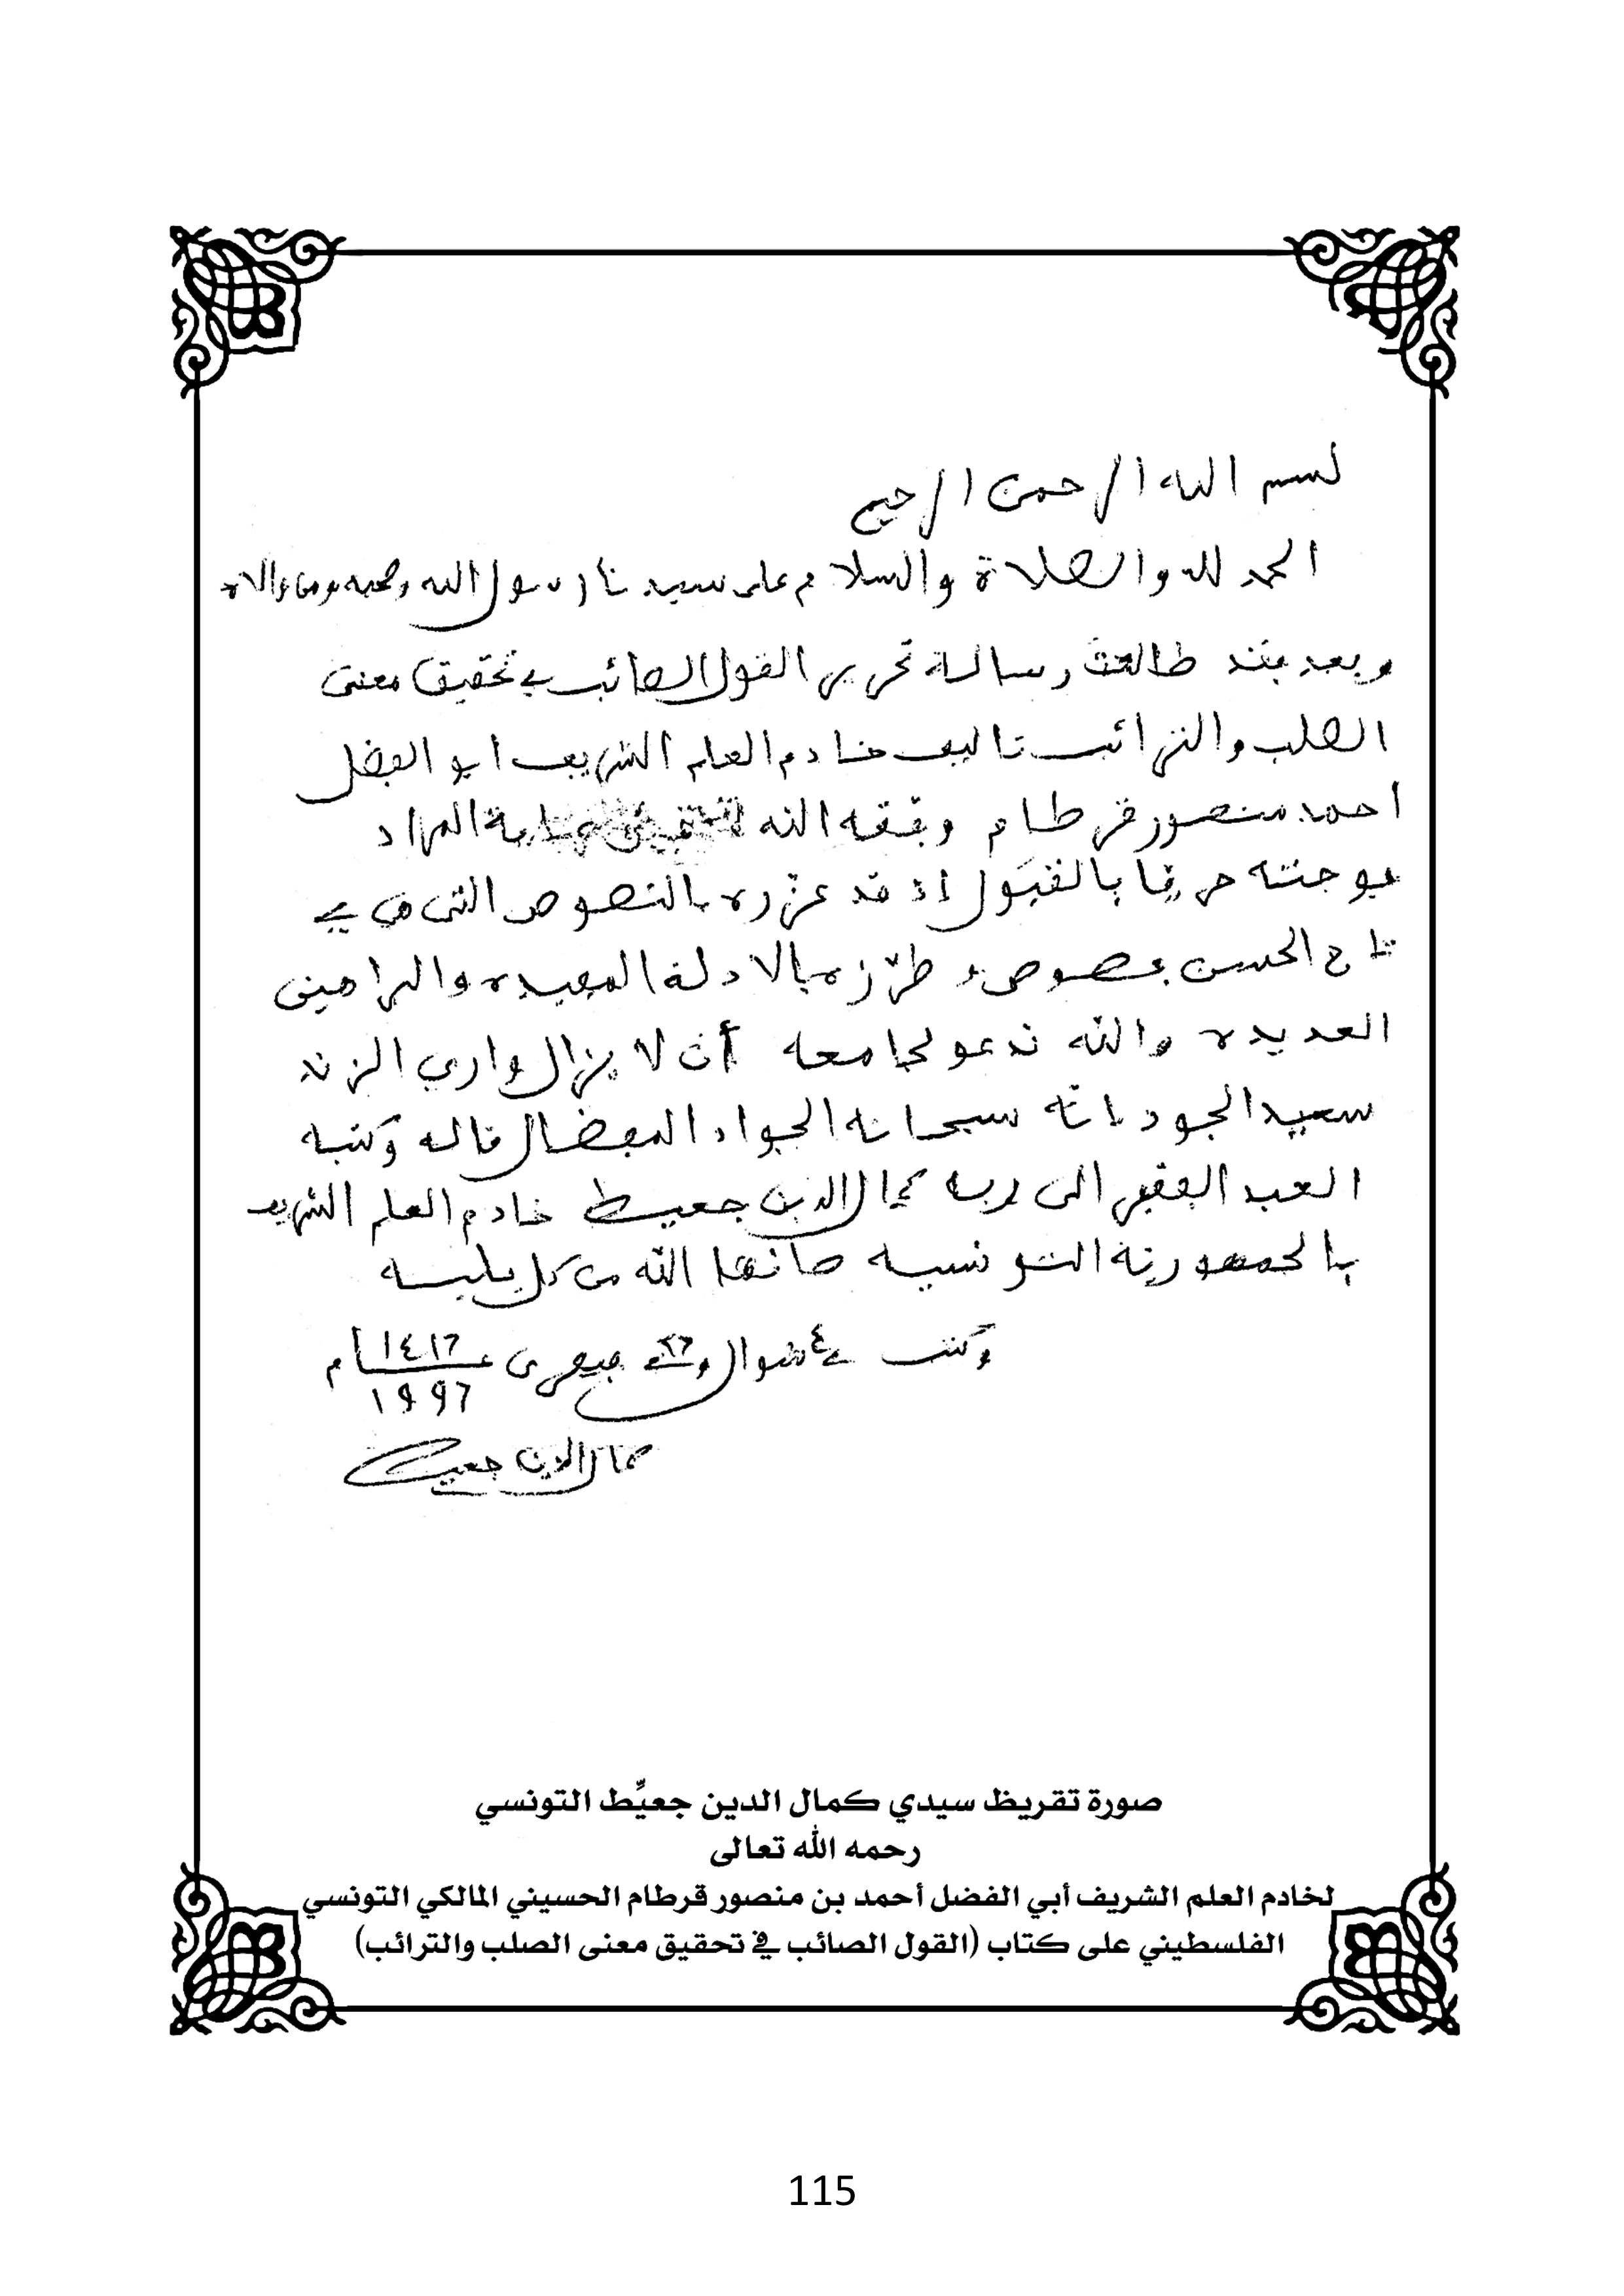 بسم الله الرحمن الرحيم
الحمد لله والصلاة والسلام على سيدنا رسول الله وصحبه ومن والاه
وبعد فقد طالعت رسالة تحرير القول الصائب في تحقيق معنى
الصلب والترائب تاليف خادم العلم الشريف ابو الفضل
احمد منصور قرطام وفقه الله المراد
فوجدته حريا بالقبول إذ قد عززه بالنصوص التي هي في
تاج الحسن فصوص وطرّزه بالادلة المفيده والبراهين
العديده والله ندعو لجامعه أن لا يزال واري الزند
سعيد الجد بانه سبحانه الجواد المفضال قاله وكتبه
العبد الفقير الى ربه كمال الدين جعيط خادم العلم الشريف
بالجمهورية التونسيه صانها الله من كل بليه
وكتب في ٤ شوال فيفري عام ١٤١٦
١٩٩٦
كمال الدين جعيط
صورة تقريظ سيدي كمال الدين جعيِّط التونسي
رحمه الله تعالى
لخادم العلم الشريف أبي الفضل أحمد بن منصور قرطام الحسيني المالكي التونسي
الفلسطيني على كتاب (القول الصائب في تحقيق معنى الصلب والترائب)
115